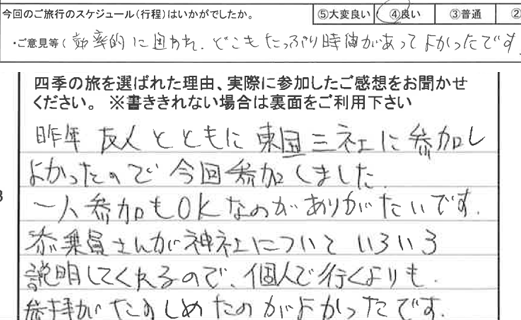 今回のご旅行のスケジュール(行程)はいかがでしたか。 ⑤大変良い ④良い ③普通 ②
・ご意見等(効率的に回われ、どこもたっぷり時間があってよかったです
四季の旅を選ばれた理由、実際に参加したご感想をお聞かせ
ください。 ※書ききれない場合は裏面をご利用下さい
昨年 友人とともに東国三社に参加し
よかったので今回参加しました。
一人参加もOKなのがありがたいです。
添乗員さんが神社についていろいろ
説明してくれるので、個人で行くよりも、
参拝がたのしめたのがよかったです。